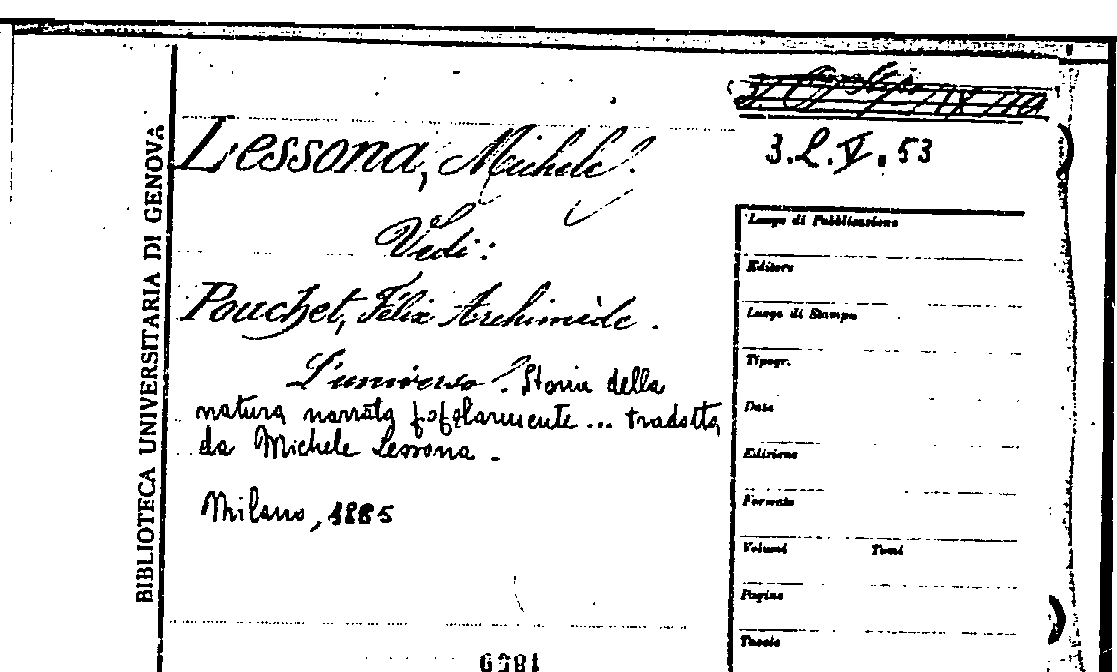 BIBLIOTECA UNIVERSITARIA DI GENOVA
3.L.V.53
Lessona, Michele.
Vedi:
Pouchet, Félix Archimède.
L'universo. Storia della
natura narrata popolarmente... tradotta
da Michele Lessona.
Milano, 1885
Luogo di Pubblicazione
Editore
Luogo di Stampa
Tipogr.
Data
Edizione
Formato
Volumi Tomi
Pagine
Tavole